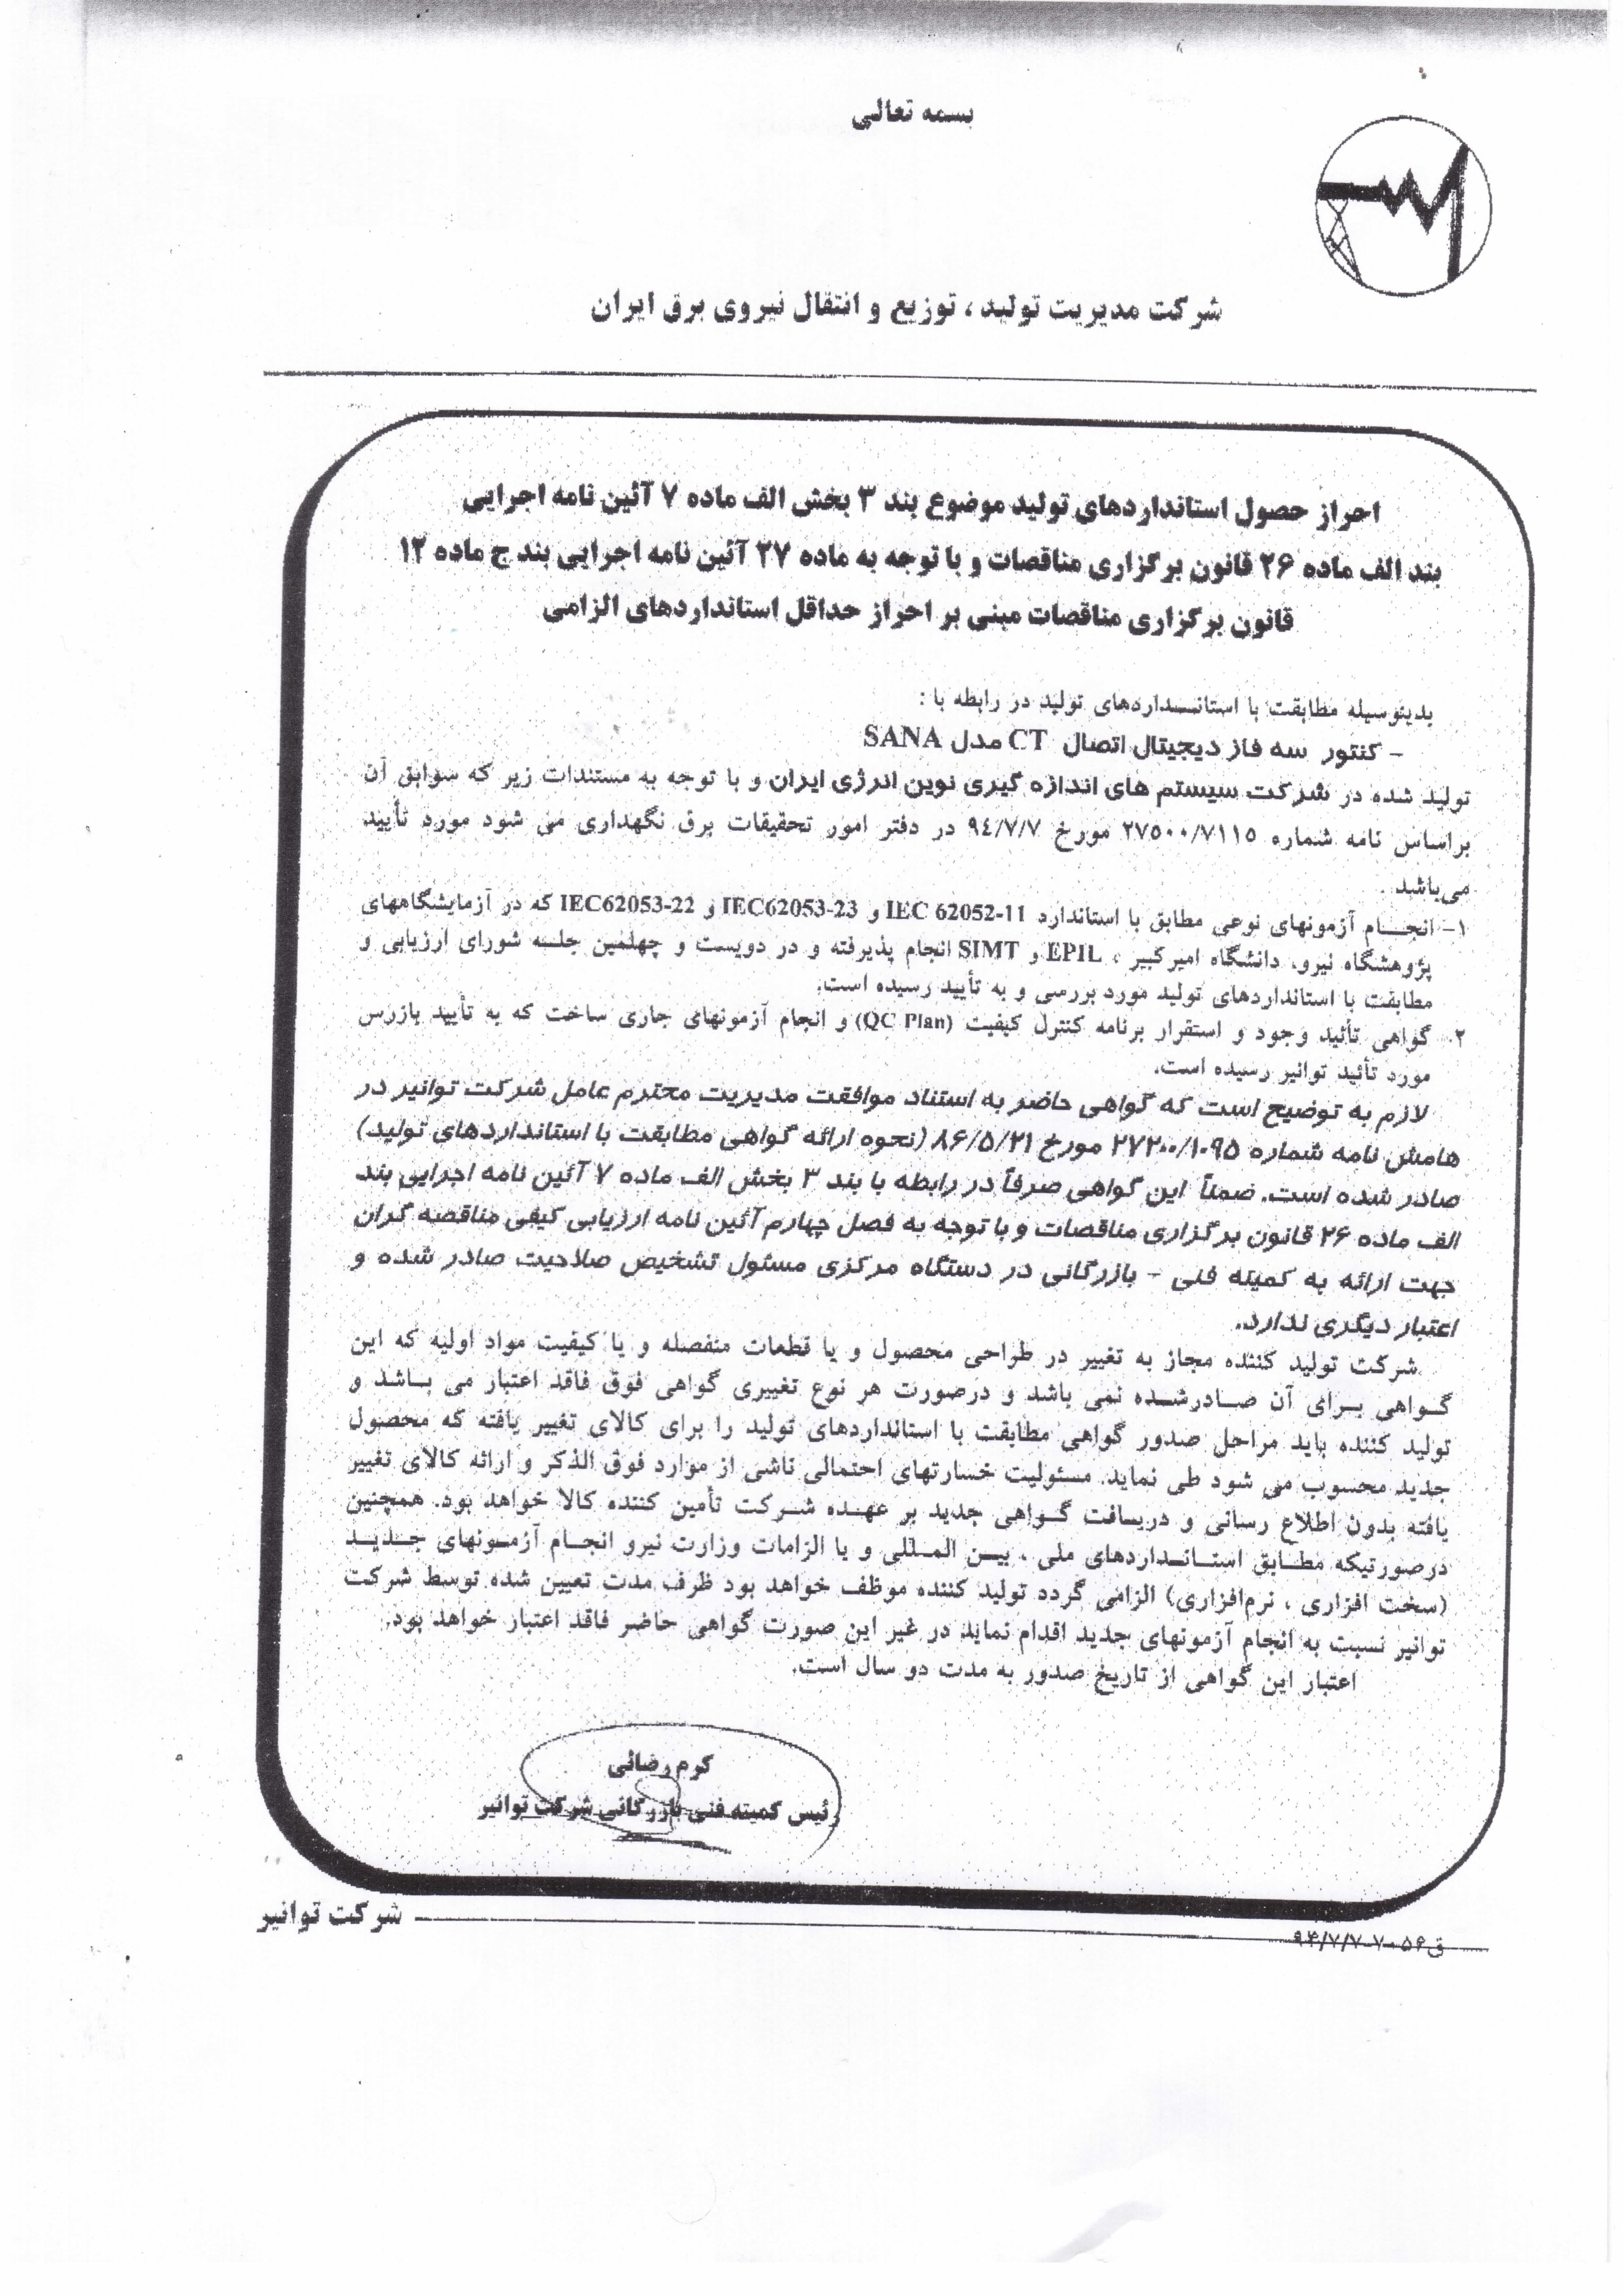 بسمه تعالی
شرکت مدیریت تولید ، توزیع و انتقال نیروی برق ایران
احراز حصول استانداردهای تولید موضوع بند ۳ بخش الف ماده ۷ آئین نامه اجرایی
بند الف ماده ۲۶ قانون برگزاری مناقصات و با توجه به ماده ۲۷ آئین نامه اجرایی بند ج ماده ۱۲
قانون برگزاری مناقصات مبنی بر احراز حداقل استانداردهای الزامی
بدینوسیله مطابقت با استانـــداردهای تولید در رابطه با :
- کنتور سه فاز دیجیتال اتصال CT مدل SANA
تولید شده در شرکت سیستم های اندازه گیری نوین انرژی ایران و با توجه به مستندات زیر که سوابق آن
براساس نامه شماره ۲۷۵۰۰/۷۱۱۵ مورخ ۹٤/۷/۷ در دفتر امور تحقیقات برق نگهداری می شود مورد تأیید
می‌باشد .
۱- انجـــام آزمونهای نوعی مطابق با استاندارد IEC 62052-11 و IEC62053-23 و IEC62053-22 که در آزمایشگاههای
پژوهشگاه نیرو، دانشگاه امیرکبیر ، EPIL و SIMT انجام پذیرفته و در دویست و چهلمین جلسه شورای ارزیابی و
مطابقت با استانداردهای تولید مورد بررسی و به تأیید رسیده است.
۲- گواهی تأئید وجود و استقرار برنامه کنترل کیفیت (QC Plan) و انجام آزمونهای جاری ساخت که به تأیید بازرس
مورد تأئید توانیر رسیده است.
لازم به توضیح است که گواهی حاضر به استناد موافقت مدیریت محترم عامل شرکت توانیر در
هامش نامه شماره ۲۷۲۰۰/۱۰۹۵ مورخ ۸۶/۵/۲۱ (نحوه ارائه گواهی مطابقت با استانداردهای تولید)
صادر شده است. ضمناً این گواهی صرفاً در رابطه با بند ۳ بخش الف ماده ۷ آئین نامه اجرایی بند
الف ماده ۲۶ قانون برگزاری مناقصات و با توجه به فصل چهارم آئین نامه ارزیابی کیفی مناقصه گران
جهت ارائه به کمیته فنی - بازرگانی در دستگاه مرکزی مسئول تشخیص صلاحیت صادر شده و
اعتبار دیگری ندارد.
شرکت تولید کننده مجاز به تغییر در طراحی محصول و یا قطعات منفصله و یا کیفیت مواد اولیه که این
گـواهی بـرای آن صـادرشـده نمی باشد و درصورت هر نوع تغییری گواهی فوق فاقد اعتبار می بـاشد و
تولید کننده باید مراحل صدور گواهی مطابقت با استانداردهای تولید را برای کالای تغییر یافته که محصول
جدید محسوب می شود طی نماید. مسئولیت خسارتهای احتمالی ناشی از موارد فوق الذکر و ارائه کالای تغییر
یافته بدون اطلاع رسانی و دریـافت گـواهی جدید بر عهـده شـرکت تأمین کننده کالا خواهد بود. همچنین
درصورتیکه مطـابق استـانـداردهای ملی ، بیـن المـللی و یا الزامات وزارت نیرو انجـام آزمـونهای جـدیـد
(سخت افزاری ، نرم‌افزاری) الزامی گردد تولید کننده موظف خواهد بود ظرف مدت تعیین شده توسط شرکت
توانیر نسبت به انجام آزمونهای جدید اقدام نماید در غیر این صورت گواهی حاضر فاقد اعتبار خواهد بود.
اعتبار این گواهی از تاریخ صدور به مدت دو سال است.
کرم رضائی
رئیس کمیته فنی بازرگانی شرکت توانیر
شرکت توانیر
ق۰۵۶-۷-۹۴/۷/۷